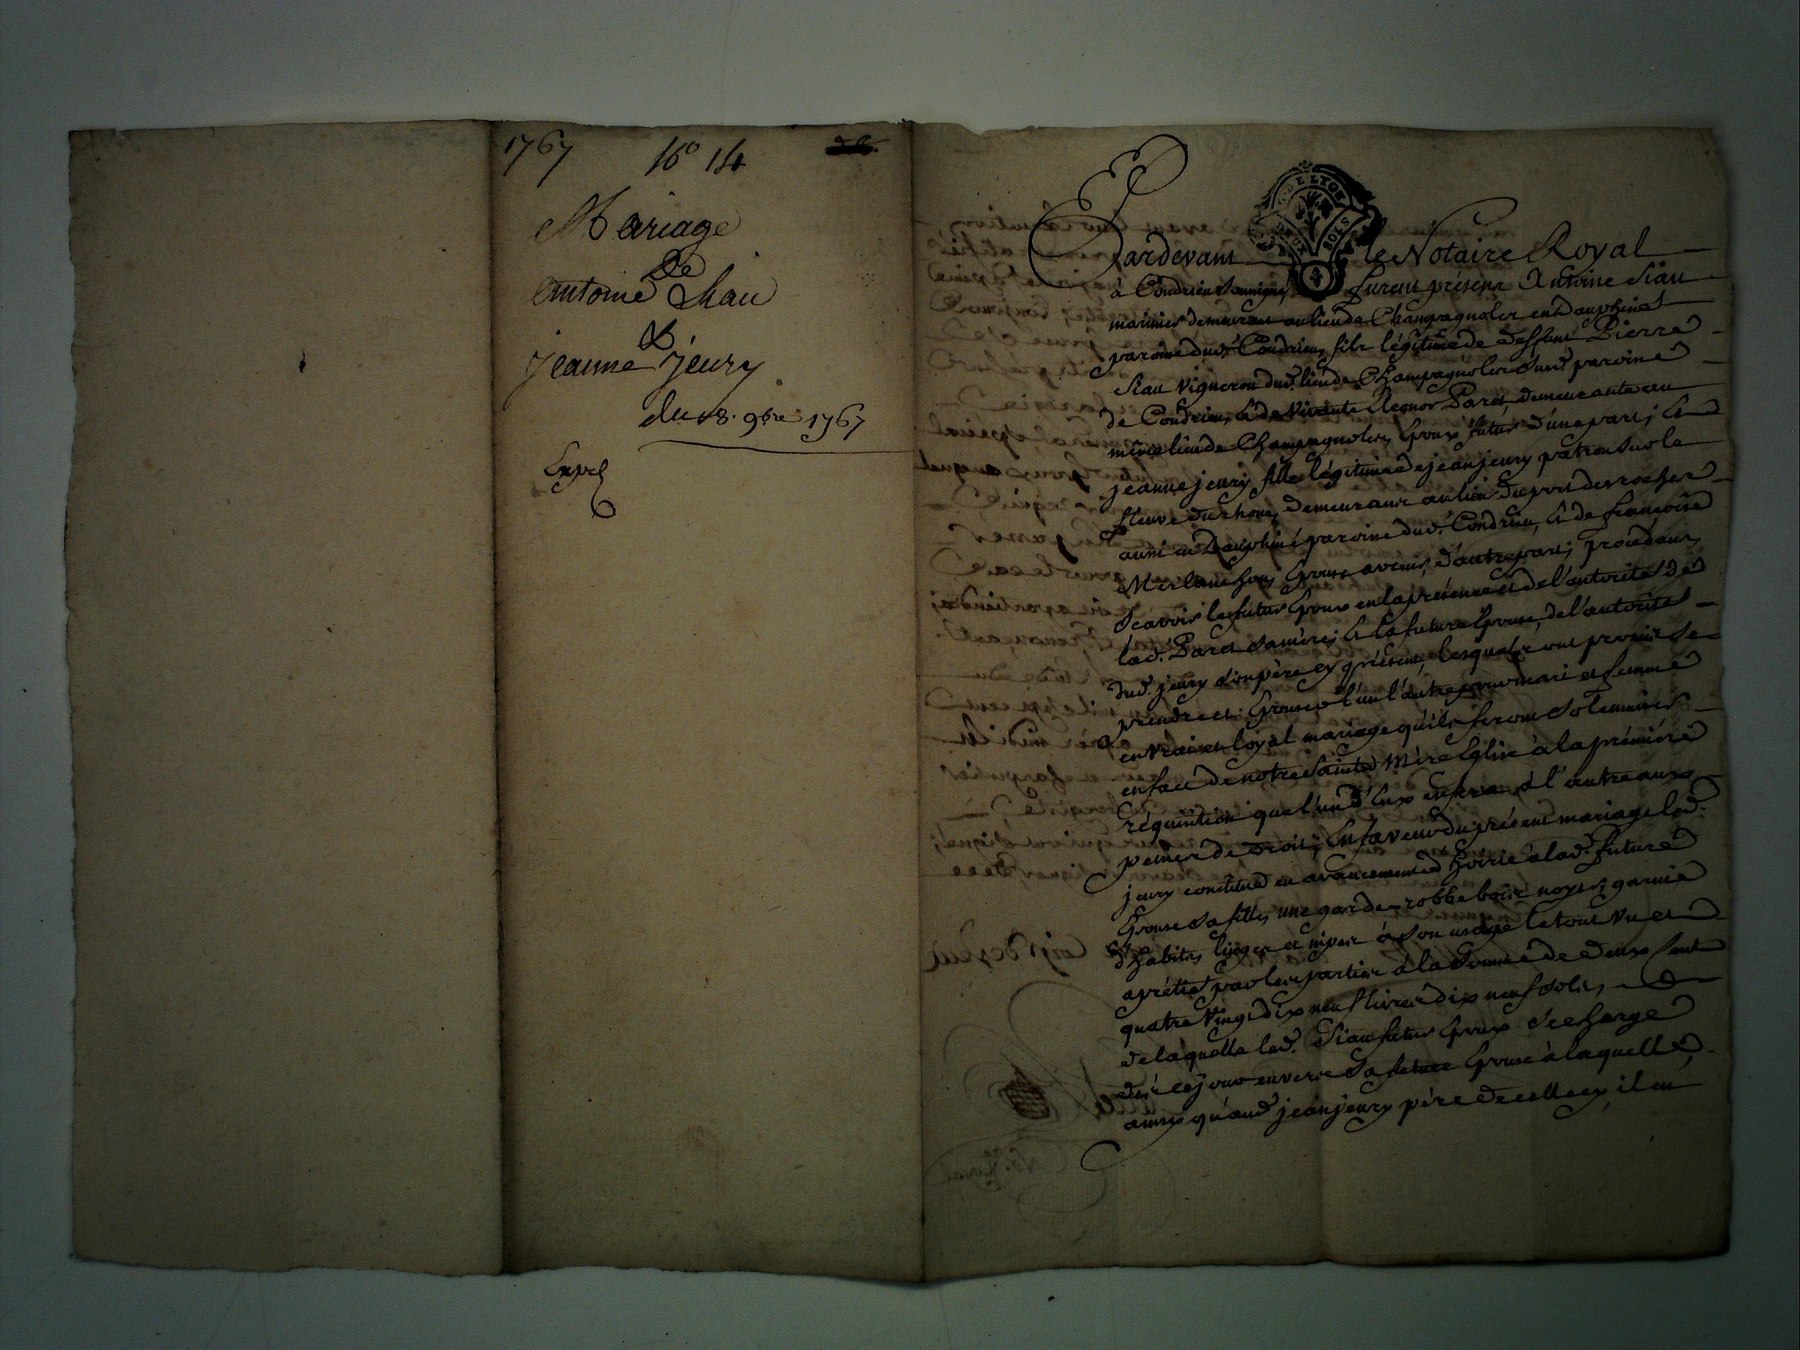 1767
16° 14
Mariage
De
Antoine Siau
&
jeanne jeury
du 8. 9bre 1767
Expéd
DE LYON
SOLS
Pardevant le Notaire Royal
à Condrieu soussigné, furent présens Antoine Siau
marinier demeurant au lieu de Champagnoles en Dauphiné
paroisse dud. Condrieu, fils légitime de deffunt Pierre
Siau vigneron dud. lieu de Champagnoles susd. paroisse
de Condrieu, & de vivante Leonor Paret, demeurante au
même lieu de Champagnoles, Epoux futur d'une part; Et
jeanne jeury fille légitime de jean jeury patron sur le
fleuve du rhone, demeurant au lieu du port des rocher
aussi en Dauphiné paroisse dud. Condrieu, & de francoise
Merlanchon, Epouse avenir, d'autre part; procédans,
Scavoir le futur Epoux en la présence et de l'autorité de
lad. Paret sa mère; Et la future Epouse, de l'autorité
dud. jeury son père cy présent, lesquels ont promis se
prendre et Epouser l'un l'autre pour mari et femme
en vrai et loyal mariage qu'ils feront solemniser
en face de notre Sainte Mère Eglise à la première
réquisition que l'un d'Eux en fera à l'autre aux
peines de droit; En faveur du présent mariage led.
jeury constitue en avancement d'hoirie à lad. future
Epouse sa fille, une garde-robbe bois noyer, garnie
d'habits, linges et nipes à son usage le tout vu et
aprétié par les parties à la somme de deux Cent
quatre vingt dix neuf livres dix neuf sols,
de laquelle led. Siau futur Epoux se charge
dès ce jour envers sa future Epouse à laquelle
ainsy qu'aud. jean jeury père de celle cy, il en